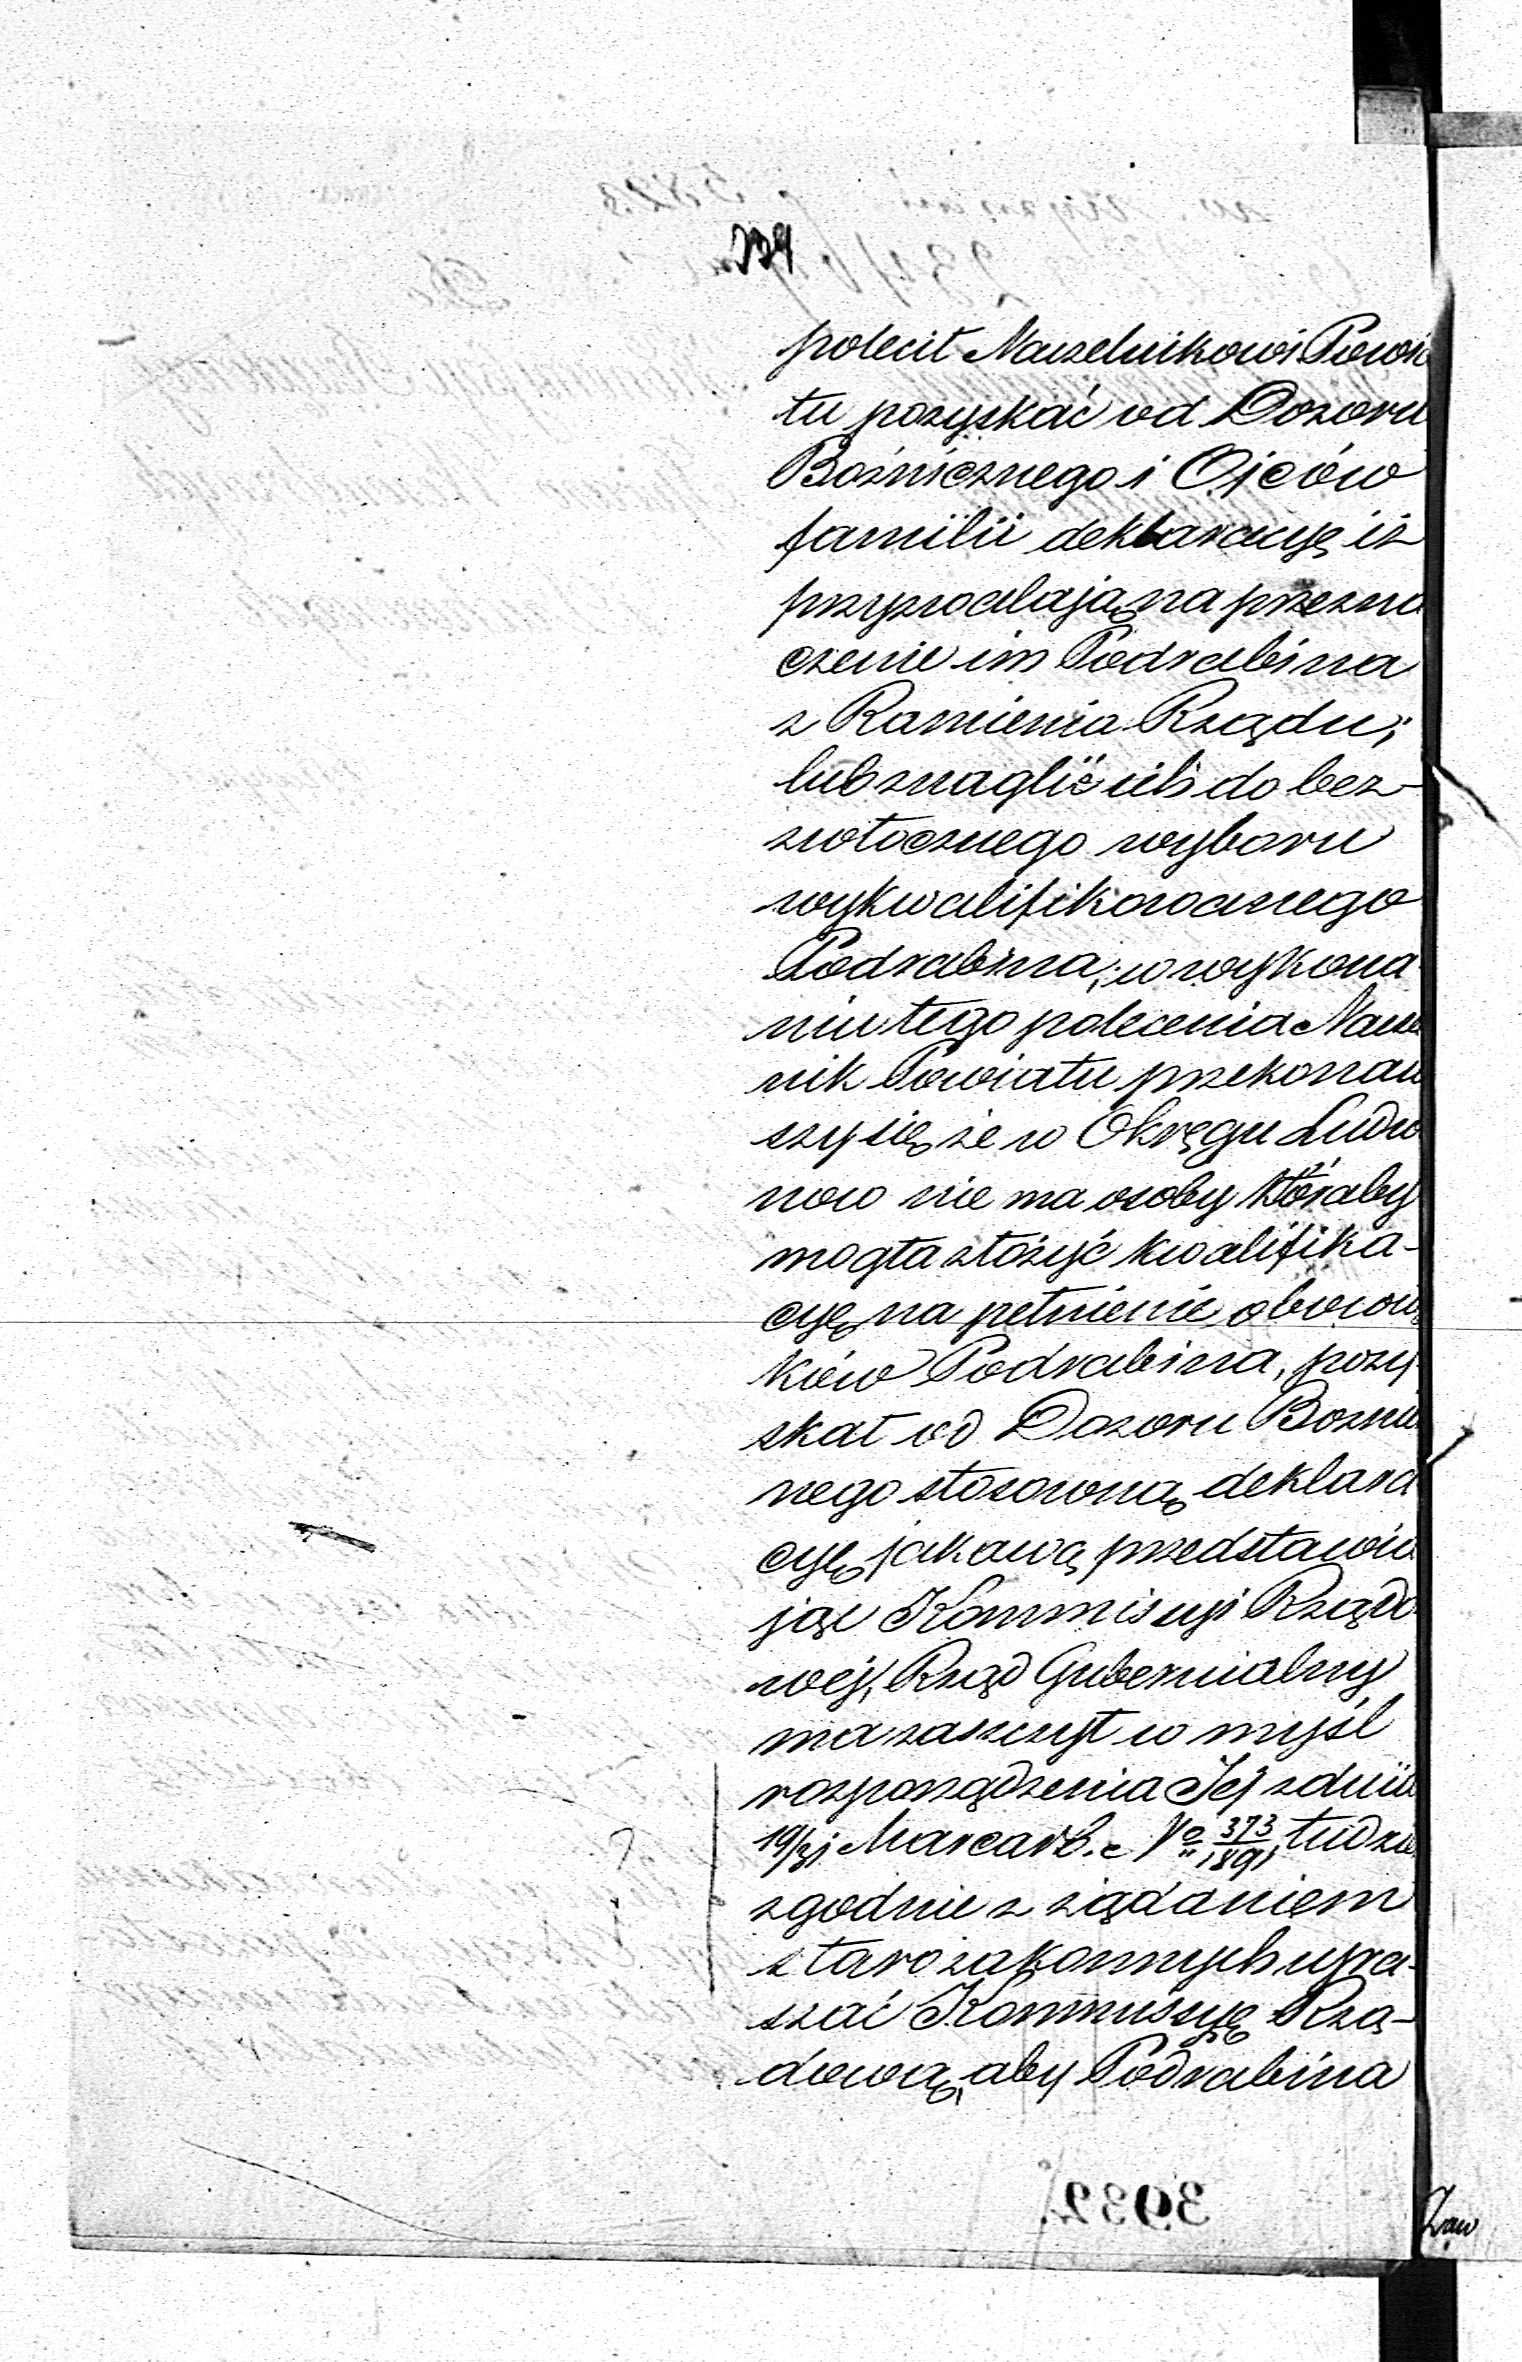 polecił Naczelnikowi Powia
tu pozyskać od Dozoru
Bóźnicznego i Ojców
familii deklaracyę iż
przyzwalają na przezna
czenie im Podrabina
z Ramienia Rządu;
lub znaglić ich do bez-
zwłocznego wyboru
wykwalifikowanego
Podrabina; w wykona
niu tego polecenia Nacze
nik Powiatu przekonaw
szy się że w Okręgu Ludw
now nie ma osoby któraby
mogła złożyć kwalifika-
cyę na pełnienie obowią
ków Podrabina, pozy
skał od Dozoru Boznic
nego stosowną deklara
cyę jakową przedstawia
jąc Kommisyi Rządo
wej, Rząd Gubernialny
ma zaszczyt w myśl
rozporządzenia Jej z dnia
19/31 Marca r b. No 373/1891, tudzie
zgodnie z żądaniem
starozakonnych upra-
szać Kommissyę Rzą-
dową, aby Podrabina
3932